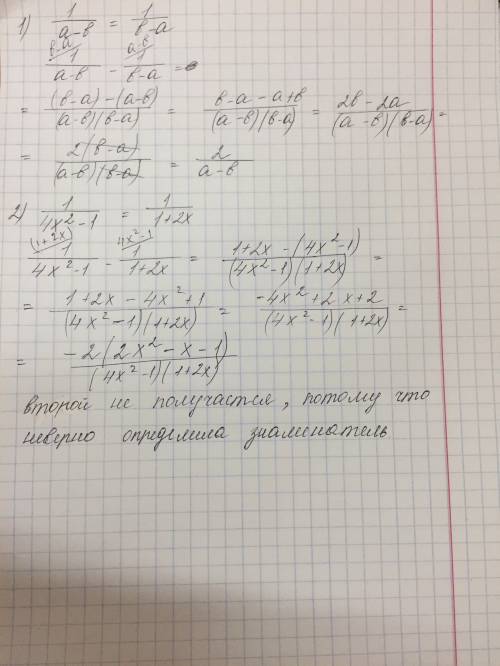 1) 1/(а-в) = 1/(в-а)
(в-а 1)/(а-в) - (а-в 1)/(в-а) =
= ((в-а)-(а-в))/((а-в)(в-а)) = (в-а-а+в)/((а-в)(в-а)) = (2в-2а)/((а-в)(в-а)) =
= 2(в-а)/((а-в)(в-а)) = 2/(а-в)
2) 1/(4x²-1) = 1/(1+2x)
((1+2x) 1)/(4x²-1) - (4x²-1 1)/(1+2x) = (1+2x-(4x²-1))/((4x²-1)(1+2x)) =
= (1+2x-4x²+1)/((4x²-1)(1+2x)) = (-4x²+2x+2)/((4x²-1)(1+2x)) =
= -2(2x²-x-1)/((4x²-1)(1+2x))
второй не получается, потому что
неверно определила знаменатель